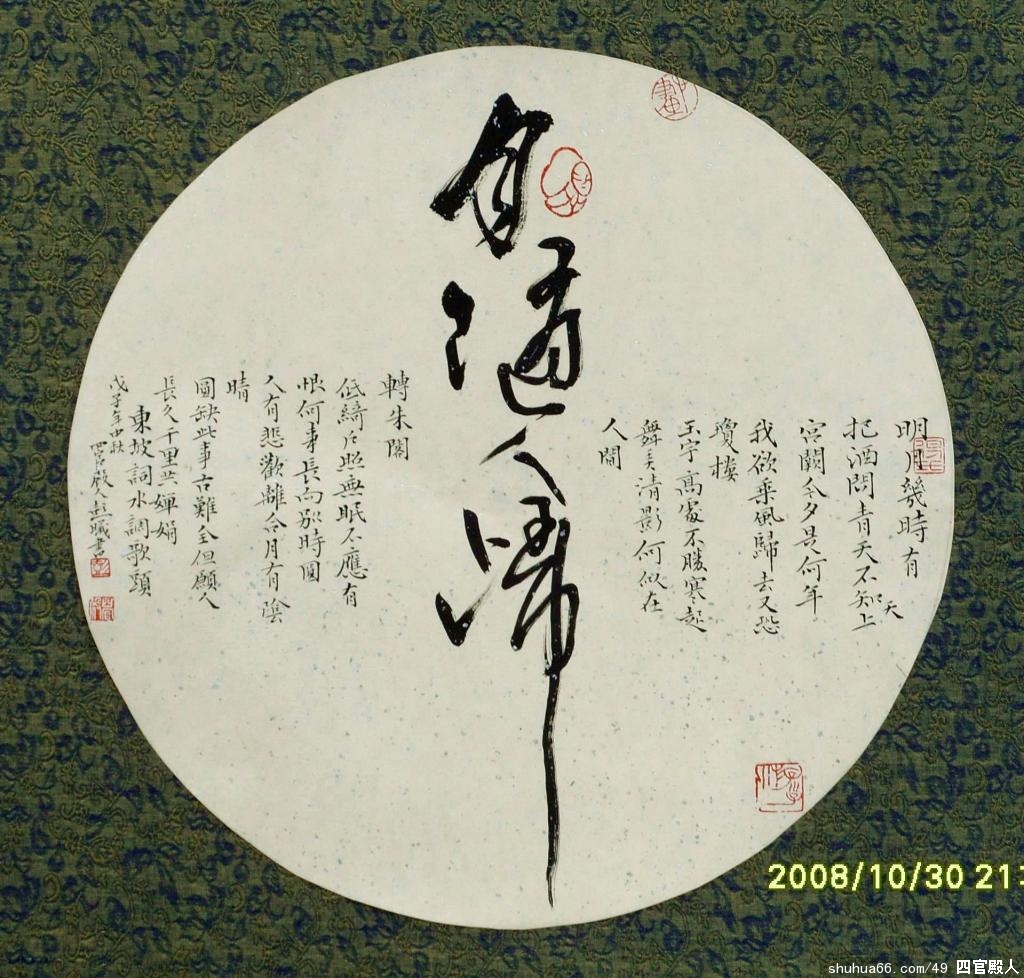 明月幾時有
天
把酒問青天不知上
宮闕今夕是何年
我欲乘風歸去又恐
瓊樓
玉宇高處不勝寒起
舞弄清影何似在
人間
月隨人歸
轉朱閣
低綺戶照無眠不應有
恨何事長向別時圓
人有悲歡離合月有陰
晴
圓缺此事古難全但願人
長久千里共嬋娟
東坡詞水調歌頭
戊子年中秋
四官殿人書
2008/10/30 21:
shuhua66.com/49 四官殿人